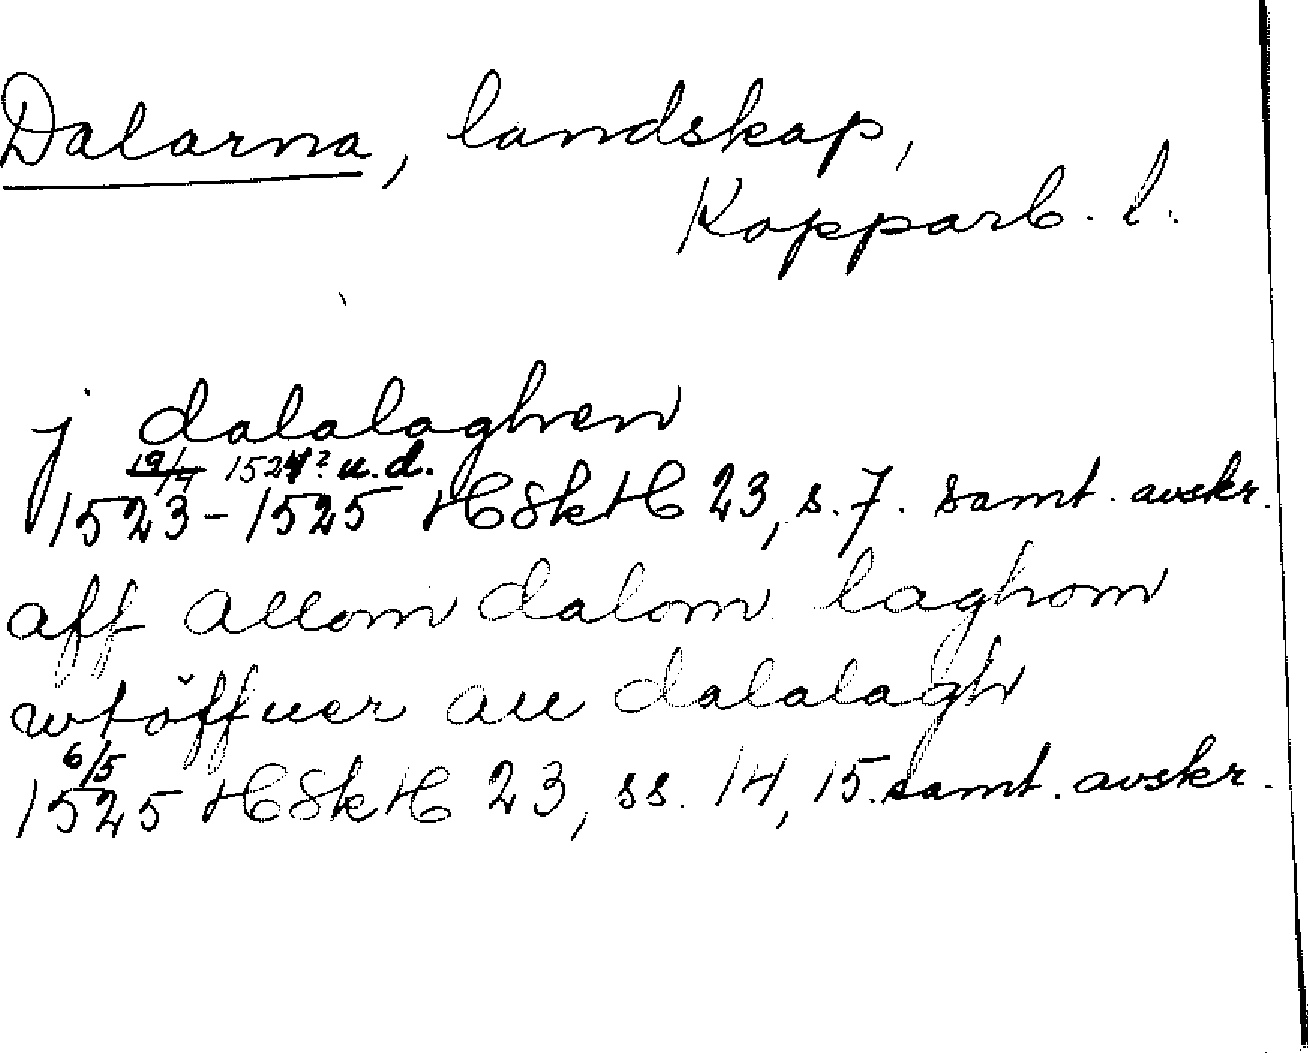 Dalarna, landskap,
Kopparb. l.
j dalalaghen
19/4 1524? u.d.
1523-1525 HSkH 23, s. 7. samt. avskr.
aff allom dalom laghom
wtöffuer all dalalagh
6/5
1525 HSkH 23, ss. 14, 15. samt. avskr.